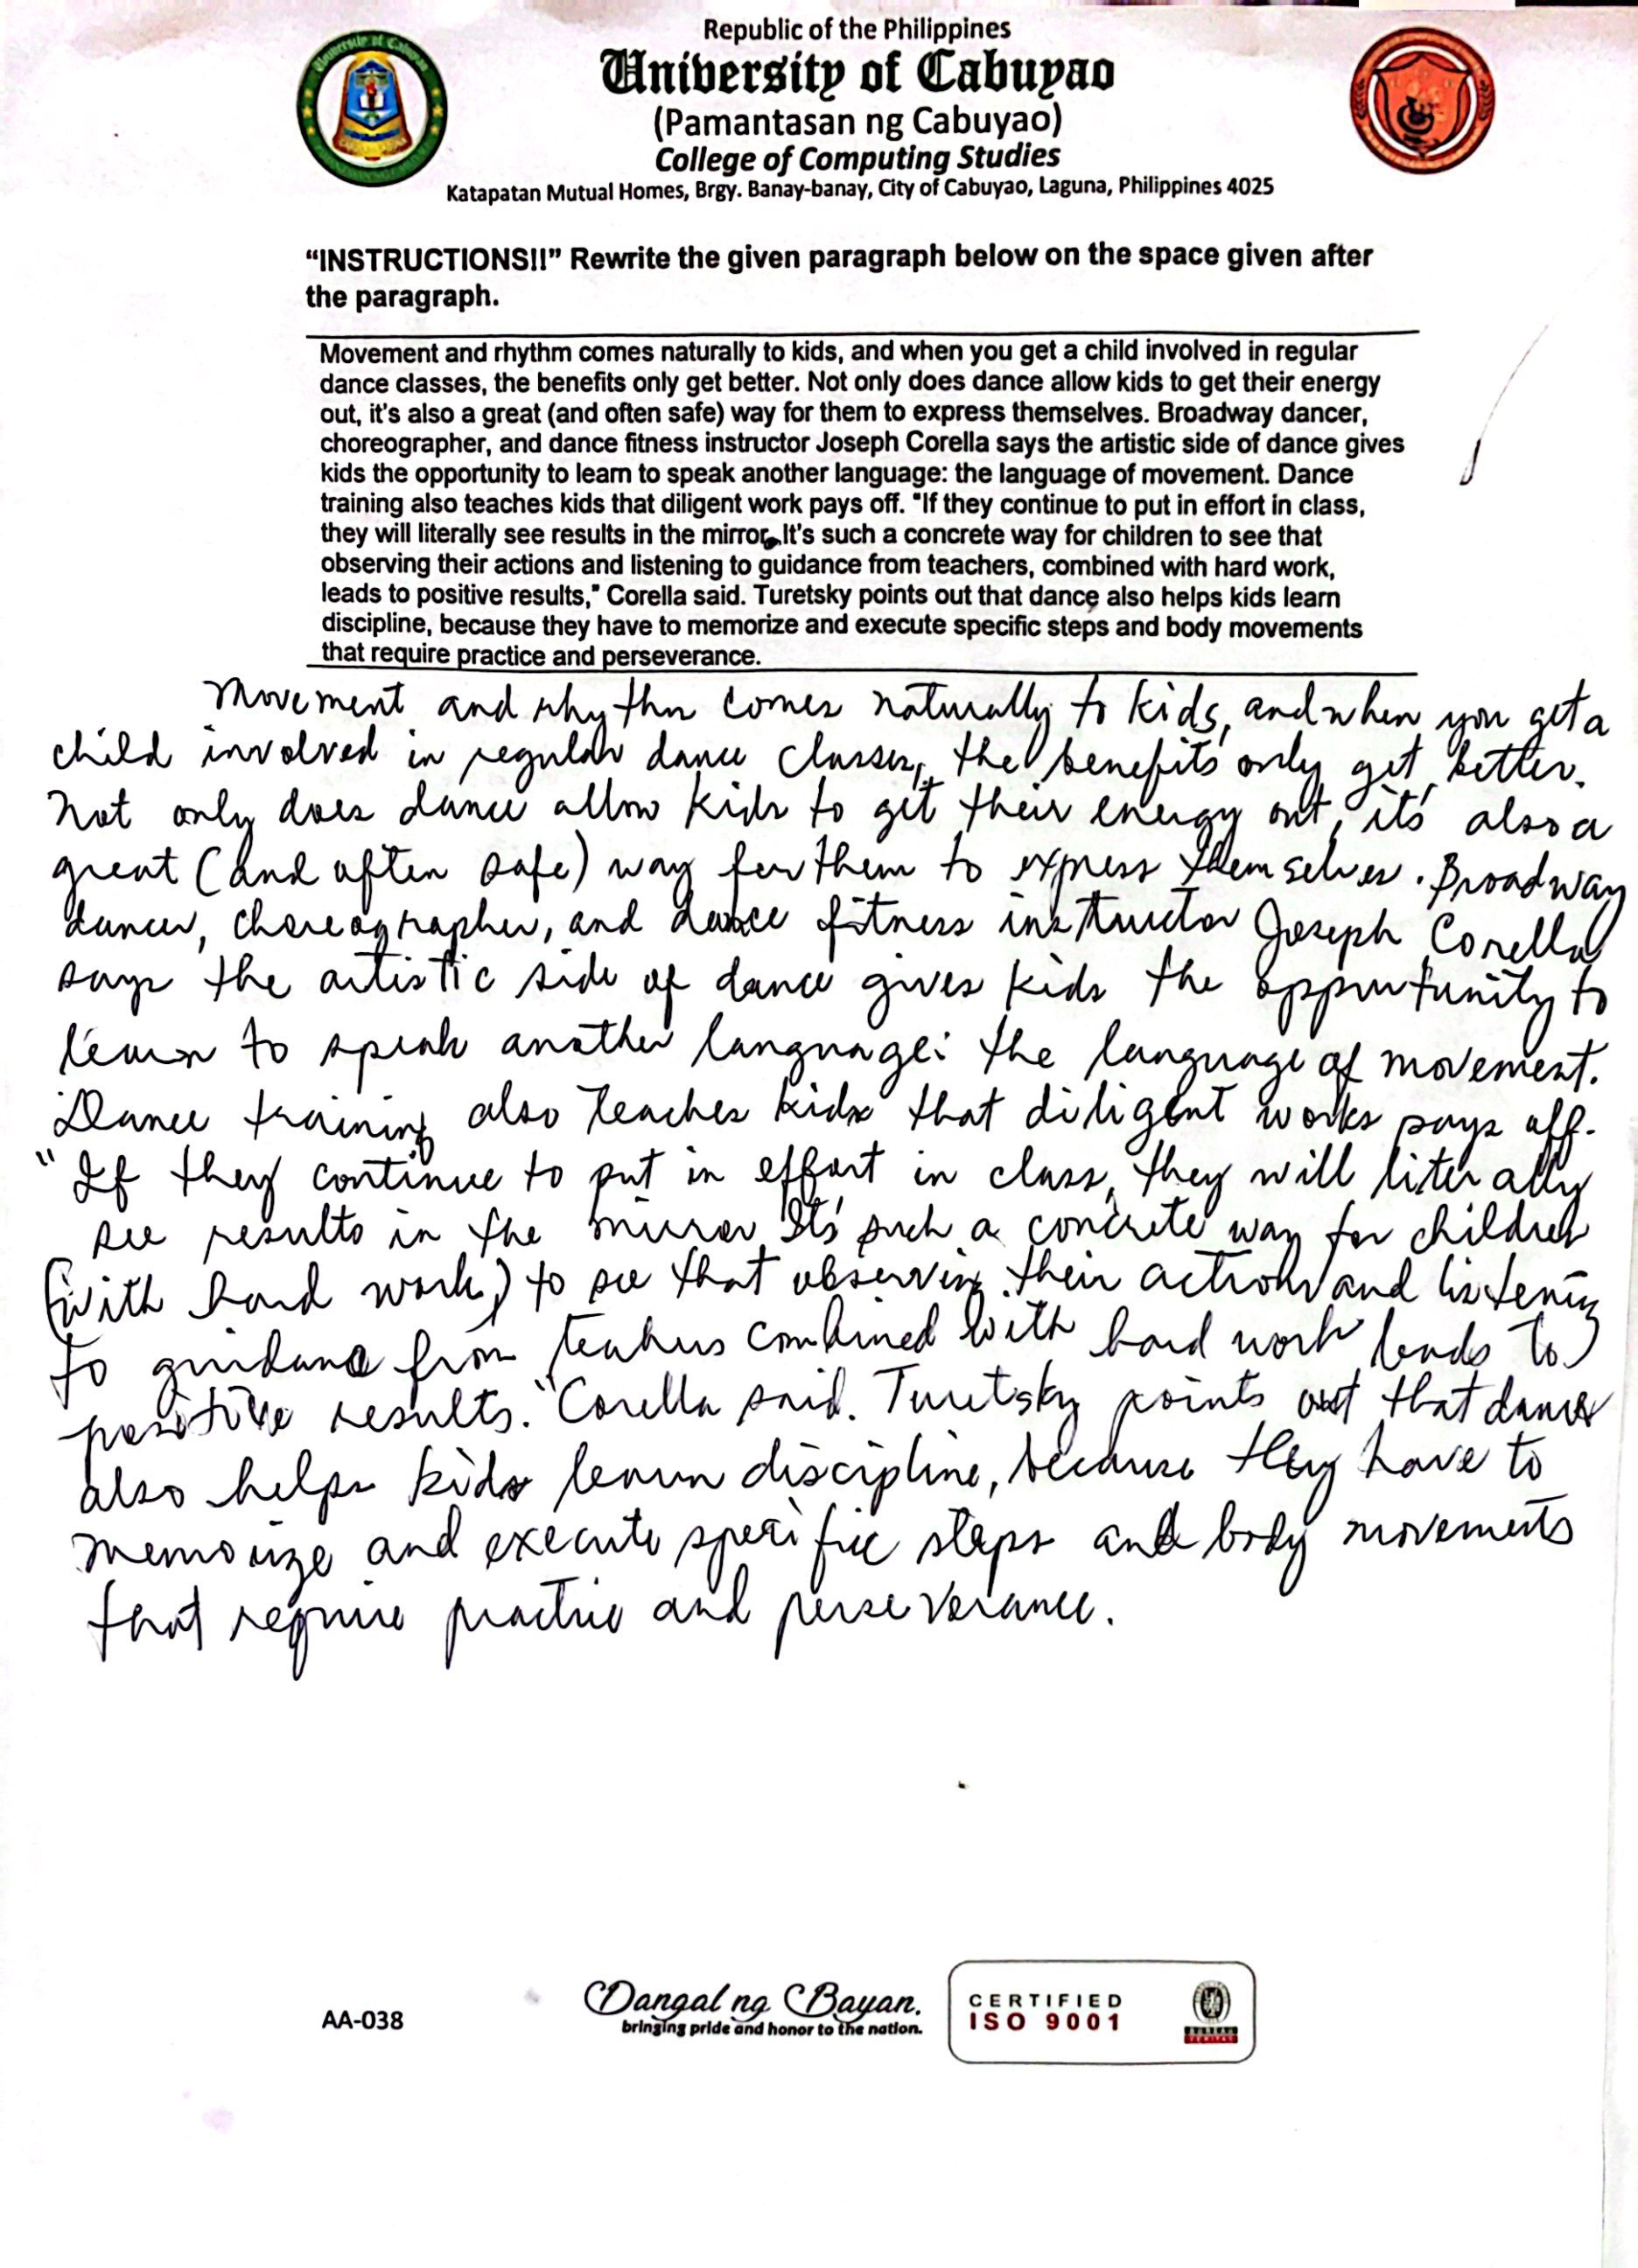 Republic of the Philippines
University of Cabuyao
(Pamantasan ng Cabuyao)
College of Computing Studies
Katapatan Mutual Homes, Brgy. Banay-banay, City of Cabuyao, Laguna, Philippines 4025
“INSTRUCTIONS!!” Rewrite the given paragraph below on the space given after
the paragraph.
Movement and rhythm comes naturally to kids, and when you get a child involved in regular
dance classes, the benefits only get better. Not only does dance allow kids to get their energy
out, it's also a great (and often safe) way for them to express themselves. Broadway dancer,
choreographer, and dance fitness instructor Joseph Corella says the artistic side of dance gives
kids the opportunity to learn to speak another language: the language of movement. Dance
training also teaches kids that diligent work pays off. "If they continue to put in effort in class,
they will literally see results in the mirror. It's such a concrete way for children to see that
observing their actions and listening to guidance from teachers, combined with hard work,
leads to positive results," Corella said. Turetsky points out that dance also helps kids learn
discipline, because they have to memorize and execute specific steps and body movements
that require practice and perseverance.
Movement and rhythm comes naturally to kids, and when you get a
child involved in regular dance classes, the benefits only get better.
Not only does dance allow kids to get their energy out, it's also a
great (and often safe) way for them to express themselves. Broadway
dancer, choreographer, and dance fitness instructor Joseph Corella
says the artistic side of dance gives kids the opportunity to
learn to speak another language: the language of movement.
Dance training also teaches kids that diligent works pays off.
"If they continue to put in effort in class, they will literally
see results in the mirror. It's such a concrete way for children
(with hard work) to see that observing their actions and listening
to guidance from teachers combined with hard work leads to
positive results." Corella said. Turetsky points out that dance
also helps kids learn discipline, because they have to
memorize and execute specific steps and body movements
that require practice and perseverance.
AA-038
Dangal ng Bayan.
bringing pride and honor to the nation.
CERTIFIED
ISO 9001
BUREAU
VERITAS